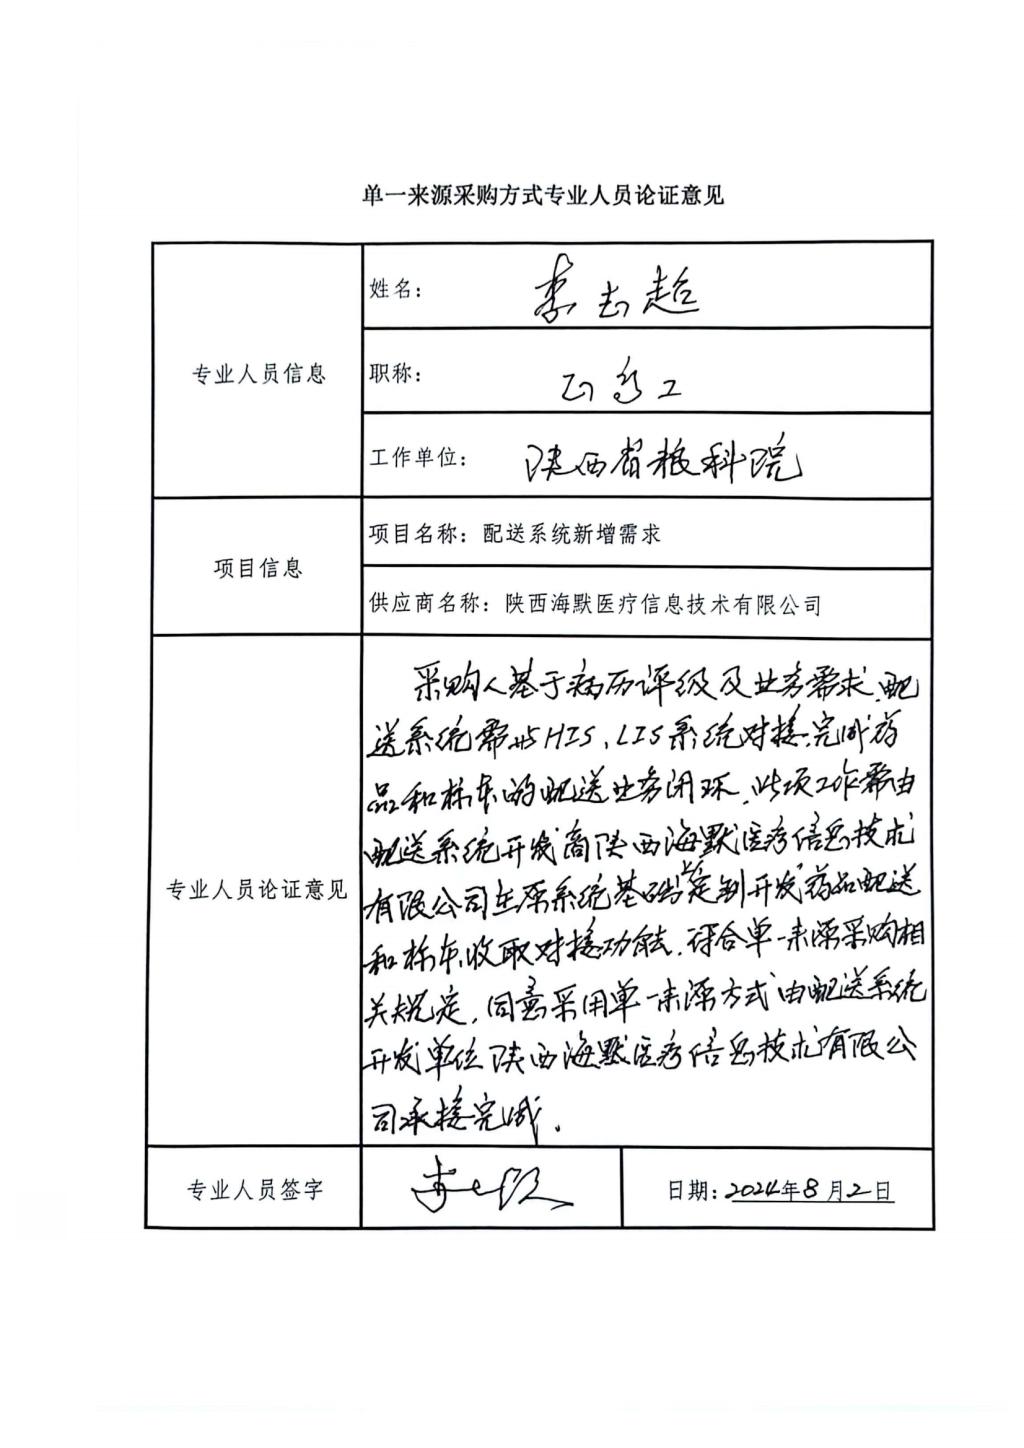 单一来源采购方式专业人员论证意见
专业人员信息
姓名：李志超
职称：正高工
工作单位：陕西省粮科院
项目信息
项目名称：配送系统新增需求
供应商名称：陕西海默医疗信息技术有限公司
专业人员论证意见
采购人基于病历评级及业务需求，配
送系统需与HIS、LIS系统对接，完成药
品和标本的配送业务闭环，此项工作需由
配送系统开发商陕西海默医疗信息技术
有限公司在原系统基础上定制开发药品配送
和标本收取对接功能，符合单一来源采购相
关规定，同意采用单一来源方式由配送系统
开发单位陕西海默医疗信息技术有限公
司承接完成。
专业人员签字
日期：2024年8月2日